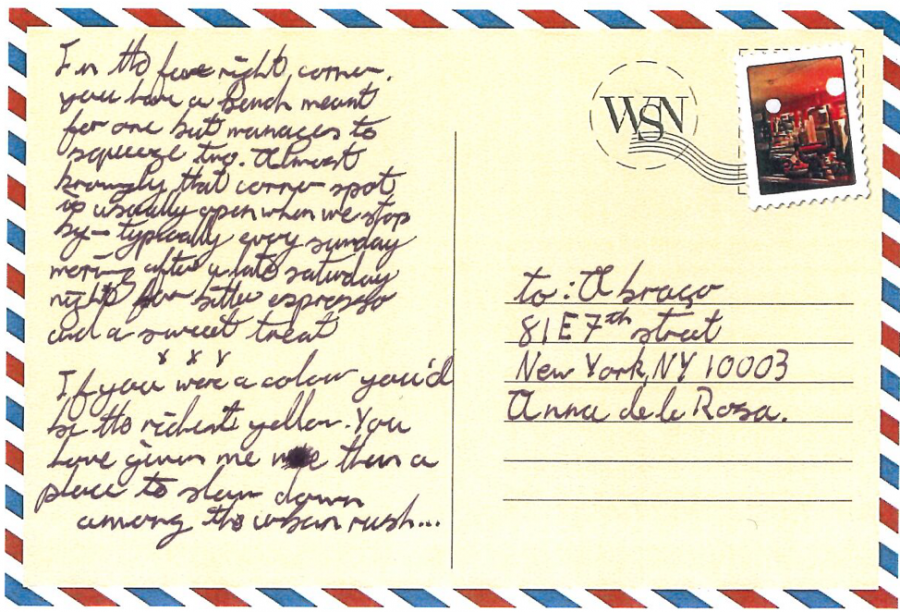 In the far right corner,
you have a bench meant
for one but manages to
squeeze two. Almost
knowingly that corner spot
is usually open when we stop
by – typically every sunday
morning after a late saturday
night for bitter espresso
and a sweet treat
x x x
If you were a colour you'd
be the richest yellow. You
have given me more than a
place to slow down
among the urban rush...
WSN
to: Abraço
81 E 7th street
New York, NY 10003
Anna de la Rosa.